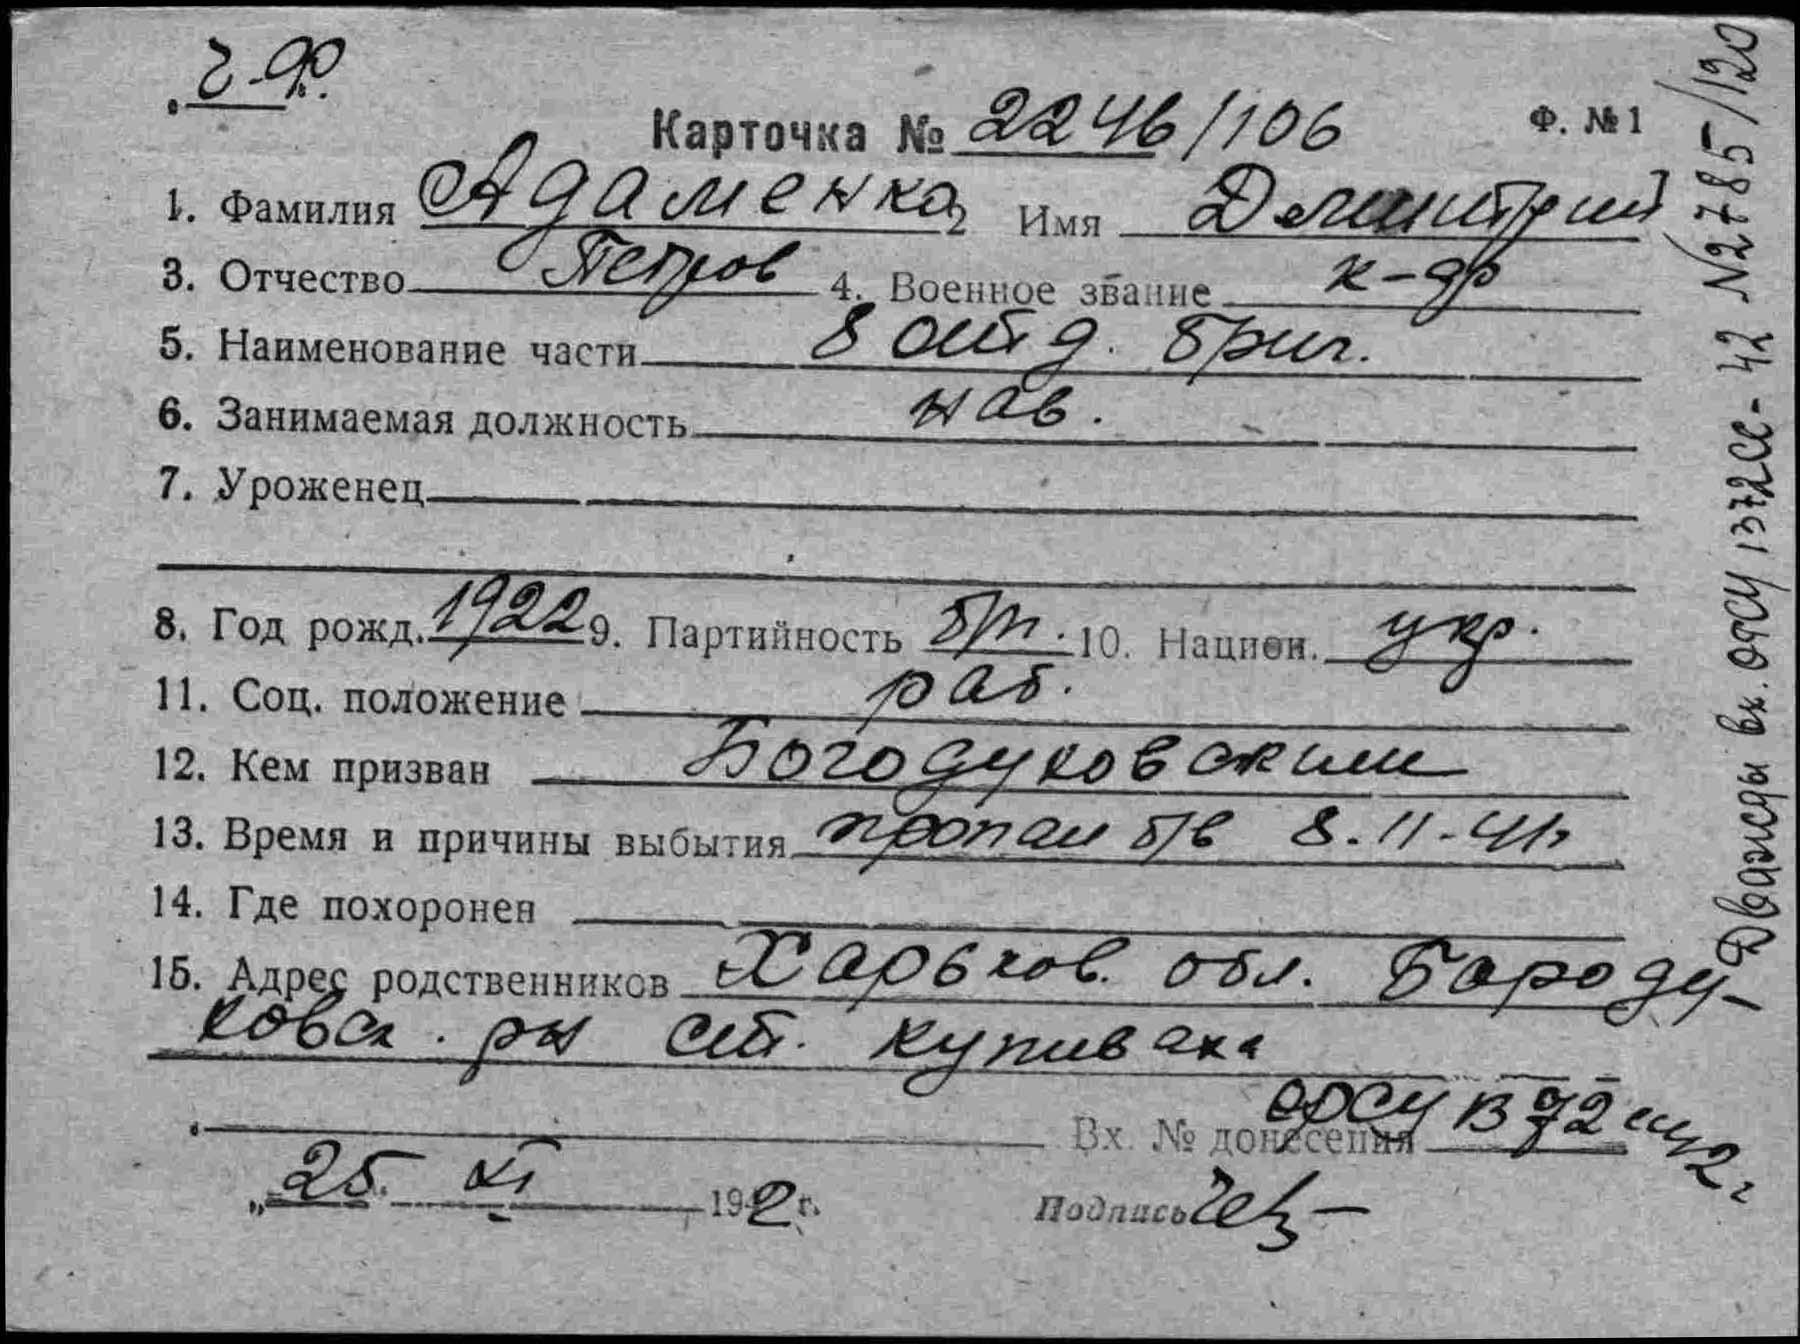 Ч.Ф.
Карточка № 2246/106 Ф. № 1
1. Фамилия Адаменко 2 Имя Дмитрий
3. Отчество Петров 4. Военное звание к-др
5. Наименование части 8 отд. бриг.
6. Занимаемая должность нав.
7. Уроженец
8. Год рожд. 1922 9. Партийность б/п. 10. Национ. укр.
11. Соц. положение раб.
12. Кем призван Богодуховским
13. Время и причины выбытия пропал б/в 8.11-41г
14. Где похоронен
15. Адрес родственников Харьков. обл. Бароду-
ховск. рн ст. Купиваха
Вх. № донесения ОРСУ 1372
„25. XI 1942 г.
Подпись
Дважды вх. ОРСУ 1372сс-42 №2785/120